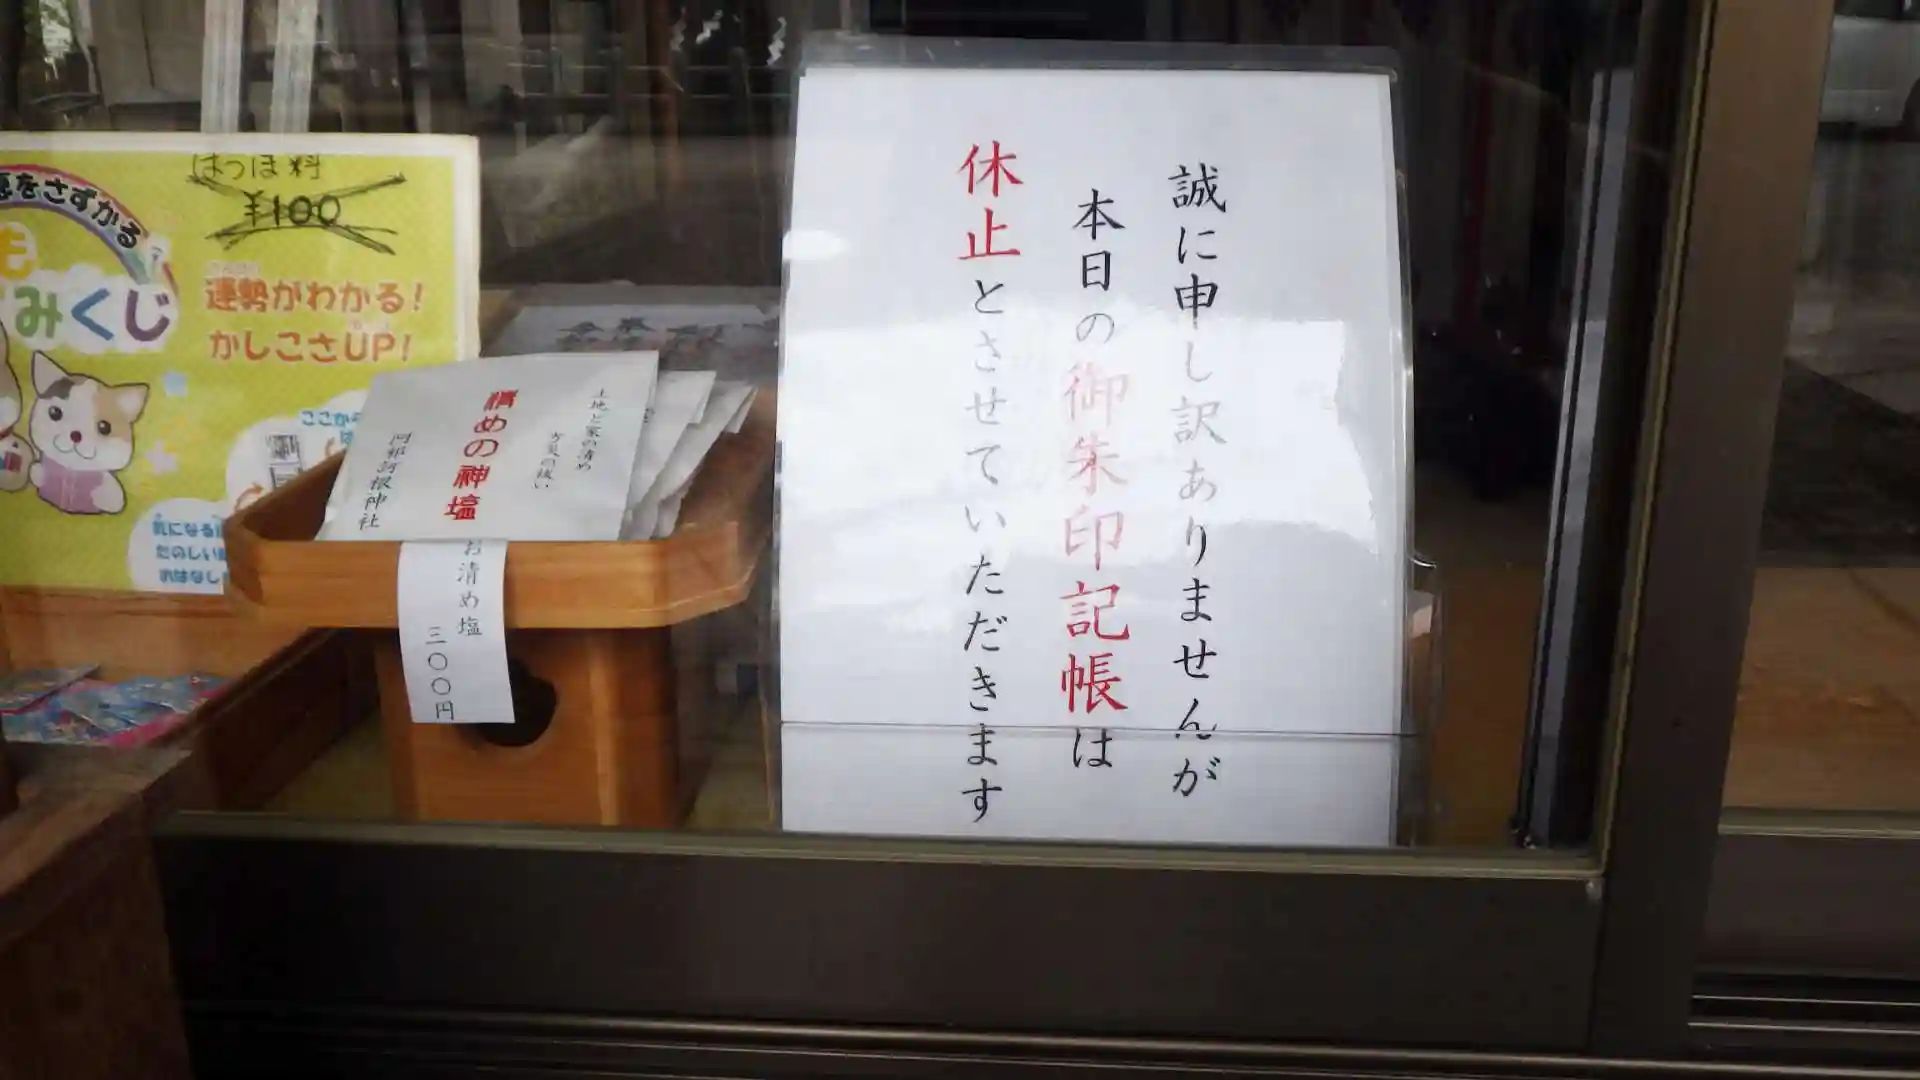 誠に申し訳ありませんが
本日の御朱印記帳は
休止とさせていただきます
はつほ料
¥100
をさずかる
みくじ
運勢がわかる!
かしこさUP!
ここから
気になる
たのしい
おはなし
土地と家の清め
方災の祓い
清めの神塩
阿邪訶根神社
お清め塩
三〇〇円